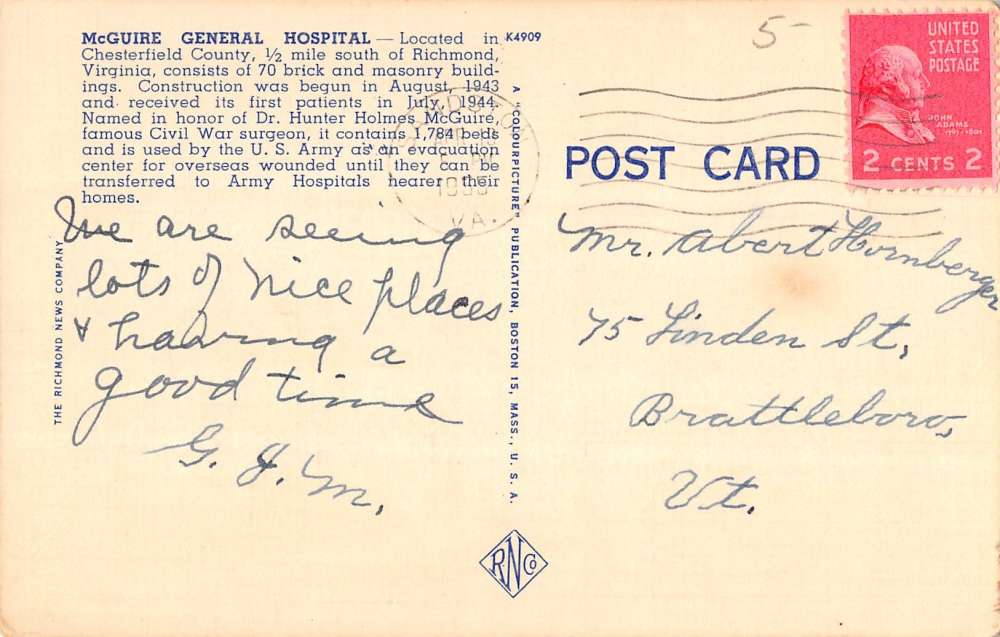 McGUIRE GENERAL HOSPITAL — Located in
Chesterfield County, ½ mile south of Richmond,
Virginia, consists of 70 brick and masonry build-
ings. Construction was begun in August, 1943
and received its first patients in July, 1944.
Named in honor of Dr. Hunter Holmes McGuire,
famous Civil War surgeon, it contains 1,784 beds
and is used by the U. S. Army as an evacuation
center for overseas wounded until they can be
transferred to Army Hospitals hearer their
homes.
K4909
We are seeing
lots of nice places
& having a
good time
G. J. M.
THE RICHMOND NEWS COMPANY
A "COLOURPICTURE" PUBLICATION, BOSTON 15, MASS., U. S. A.
RNCo
5-
POST CARD
UNITED
STATES
POSTAGE
JOHN
ADAMS
1797-1801
2 CENTS 2
VA.
Mr. Abert Hornberger
75 Linden St,
Brattleboro,
Vt.